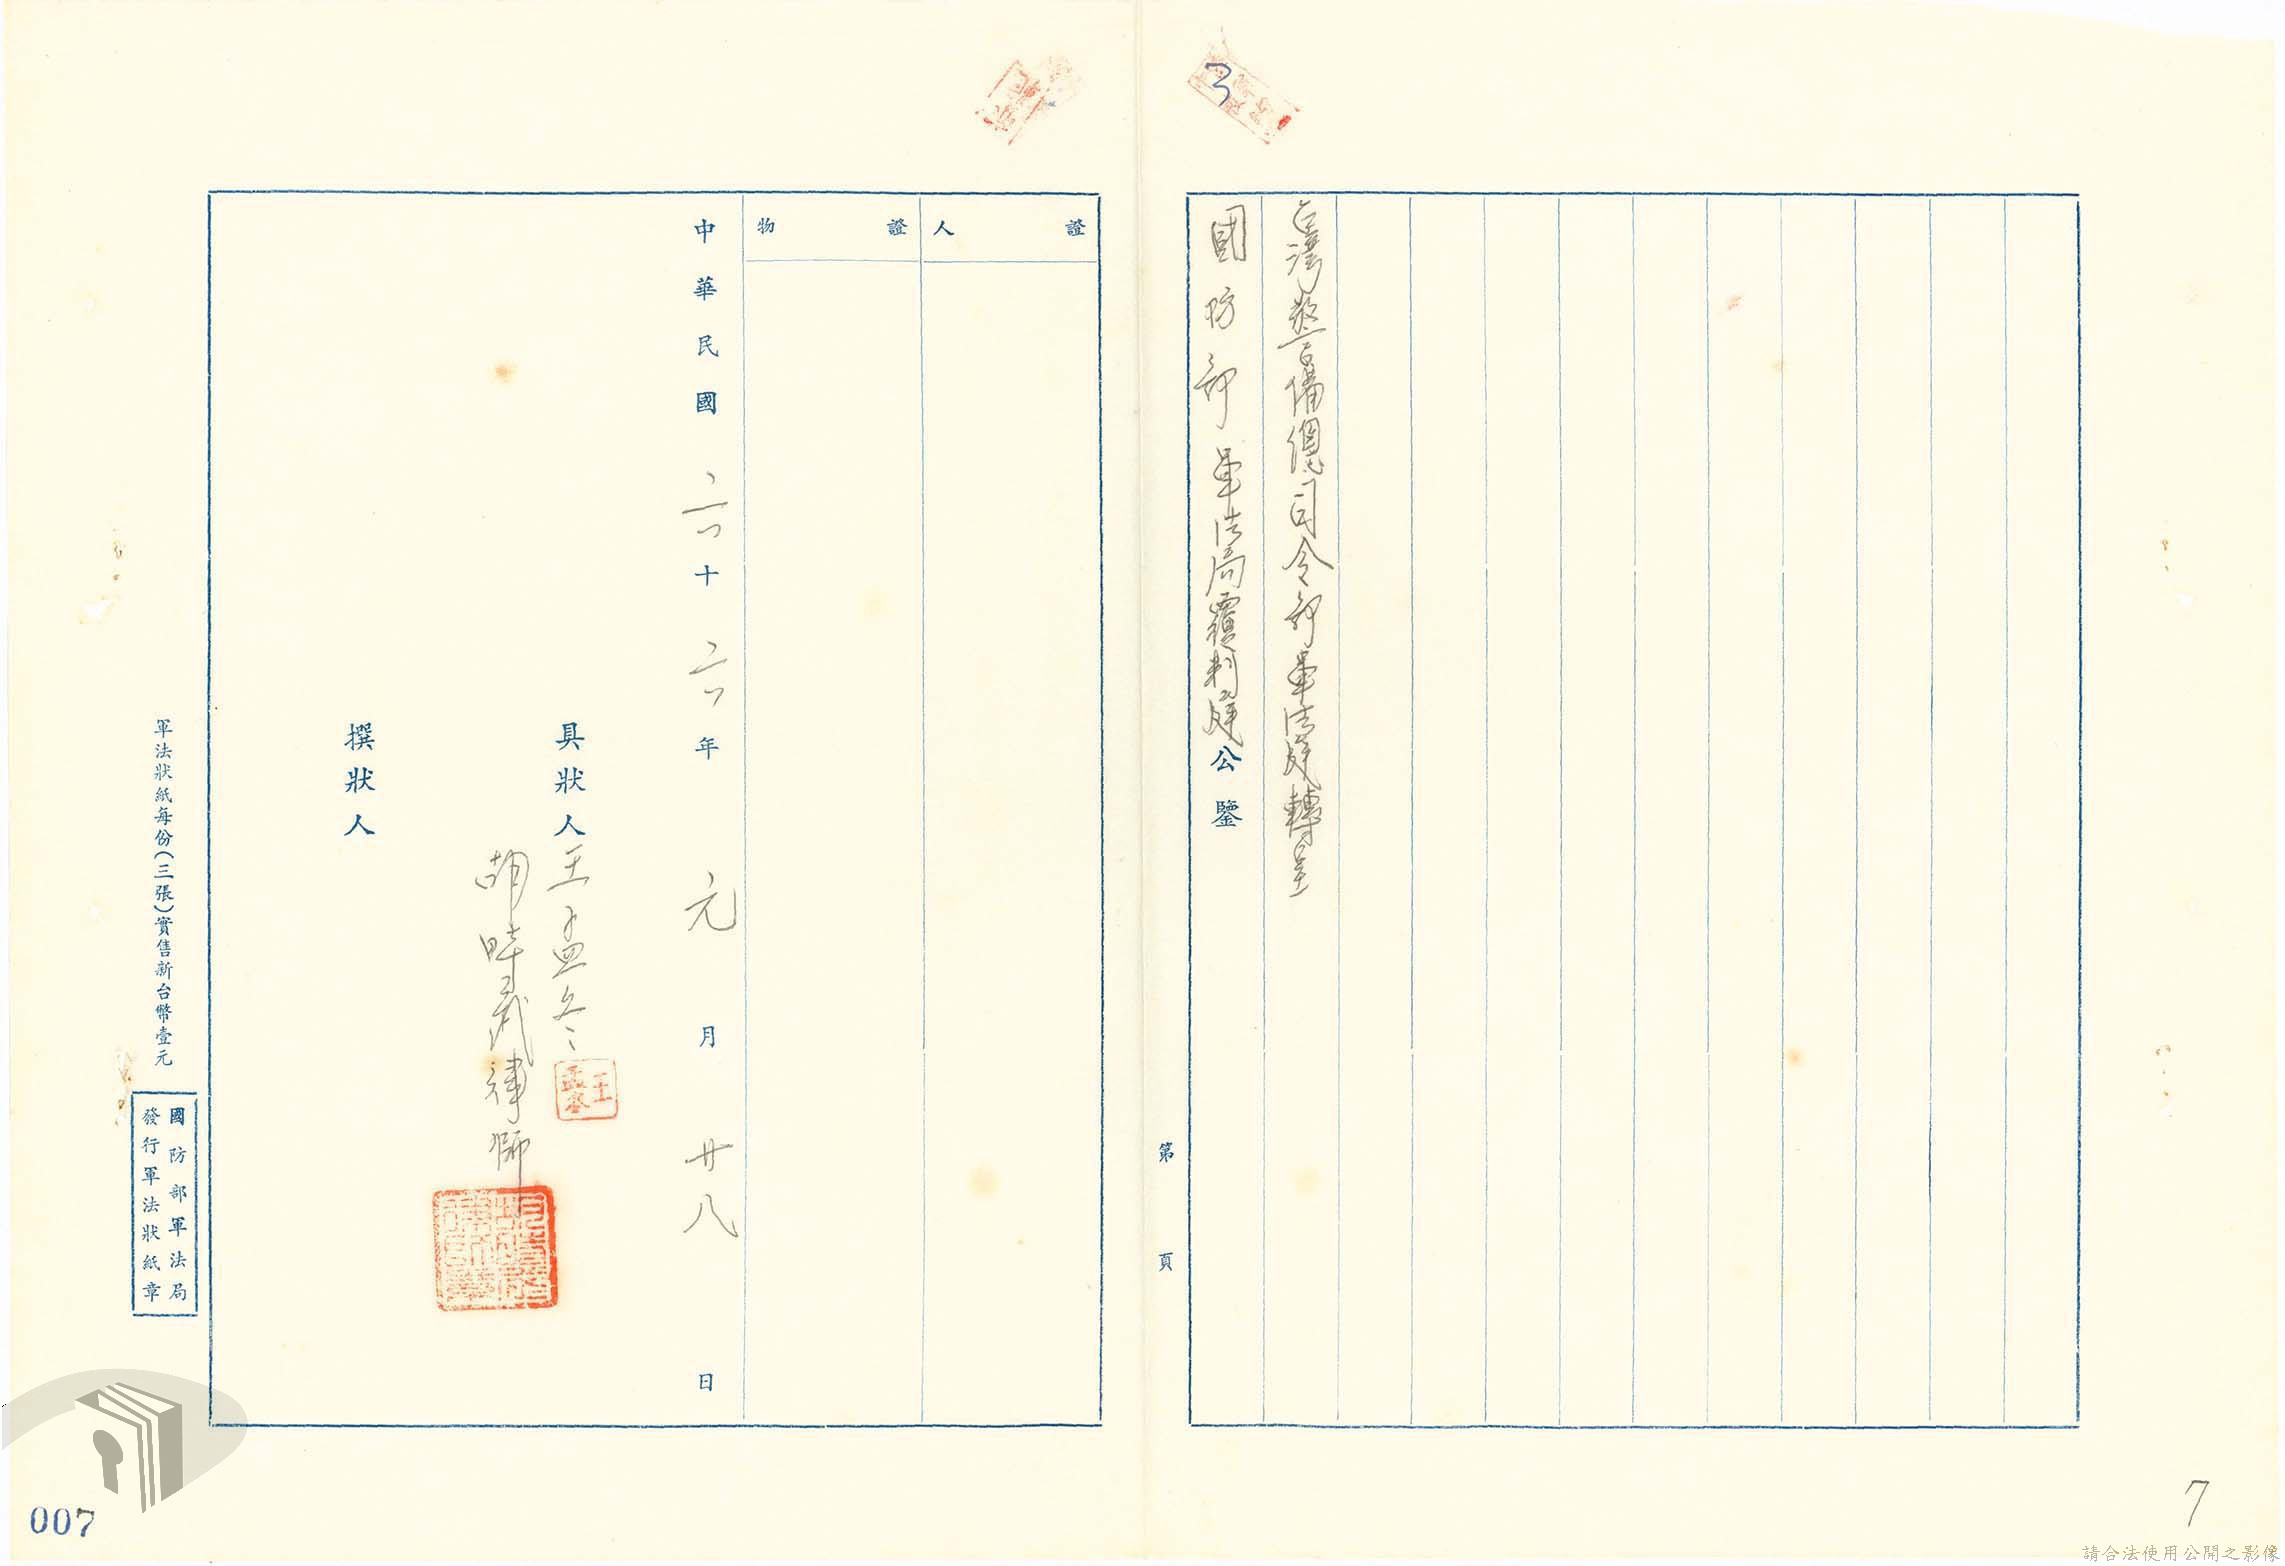 台灣警備總司令部軍法庭轉呈
國防部軍法局覆判庭公鑒
第 頁
證人
證物
中華民國六十六年元月廿八日
具狀人王孟冬
胡時
律師
撰狀人
王孟冬
軍法狀紙每份(三張)實售新台幣壹元
國防部軍法局
發行軍法狀紙章
3
007
7
請合法使用公開之影像